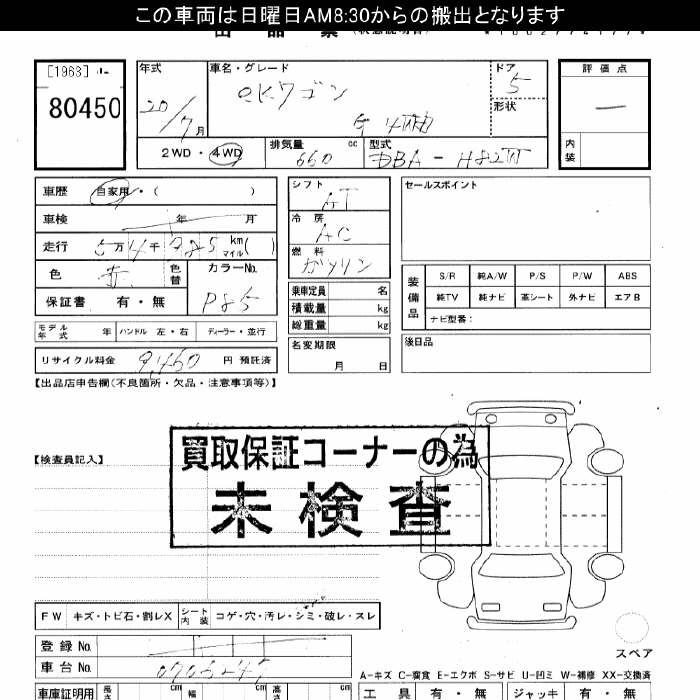 この車両は日曜日AM8:30からの搬出となります
[1963]
80450
年式
20/7月
車名・グレード
eKワゴン
G 4WD
ドア
5
形状
評価点
―
内装
2WD・4WD
排気量
660 cc
型式
DBA-H82W
車歴 自家用・( )
車検 年 月
走行 5万4千985 km マイル( )
色 赤 色替
カラーNo. P85
保証書 有・無
モデル年式 年 ハンドル 左・右 ディーラー・並行
リサイクル料金 9,460 円 預託済
シフト AT
冷房 AC
燃料 ガソリン
乗車定員 名
積載量 kg
総重量 kg
名変期限
月 日
セールスポイント
装備品
S/R 純A/W P/S P/W ABS
純TV 純ナビ 革シート 外ナビ エアB
ナビ型番:
後日品
【出品店申告欄(不良箇所・欠品・注意事項等)】
買取保証コーナーの為
未検査
【検査員記入】
FW キズ・トビ石・割レX シート内装 コゲ・穴・汚レ・シミ・破レ・スレ
スペア
登録No.
車台No.
A-キズ C-腐食 E-エクボ S-サビ U-凹ミ W-補修 XX-交換済
車庫証明用 長さ cm 幅 cm 高さ cm
工具 有・無 ジャッキ 有・無